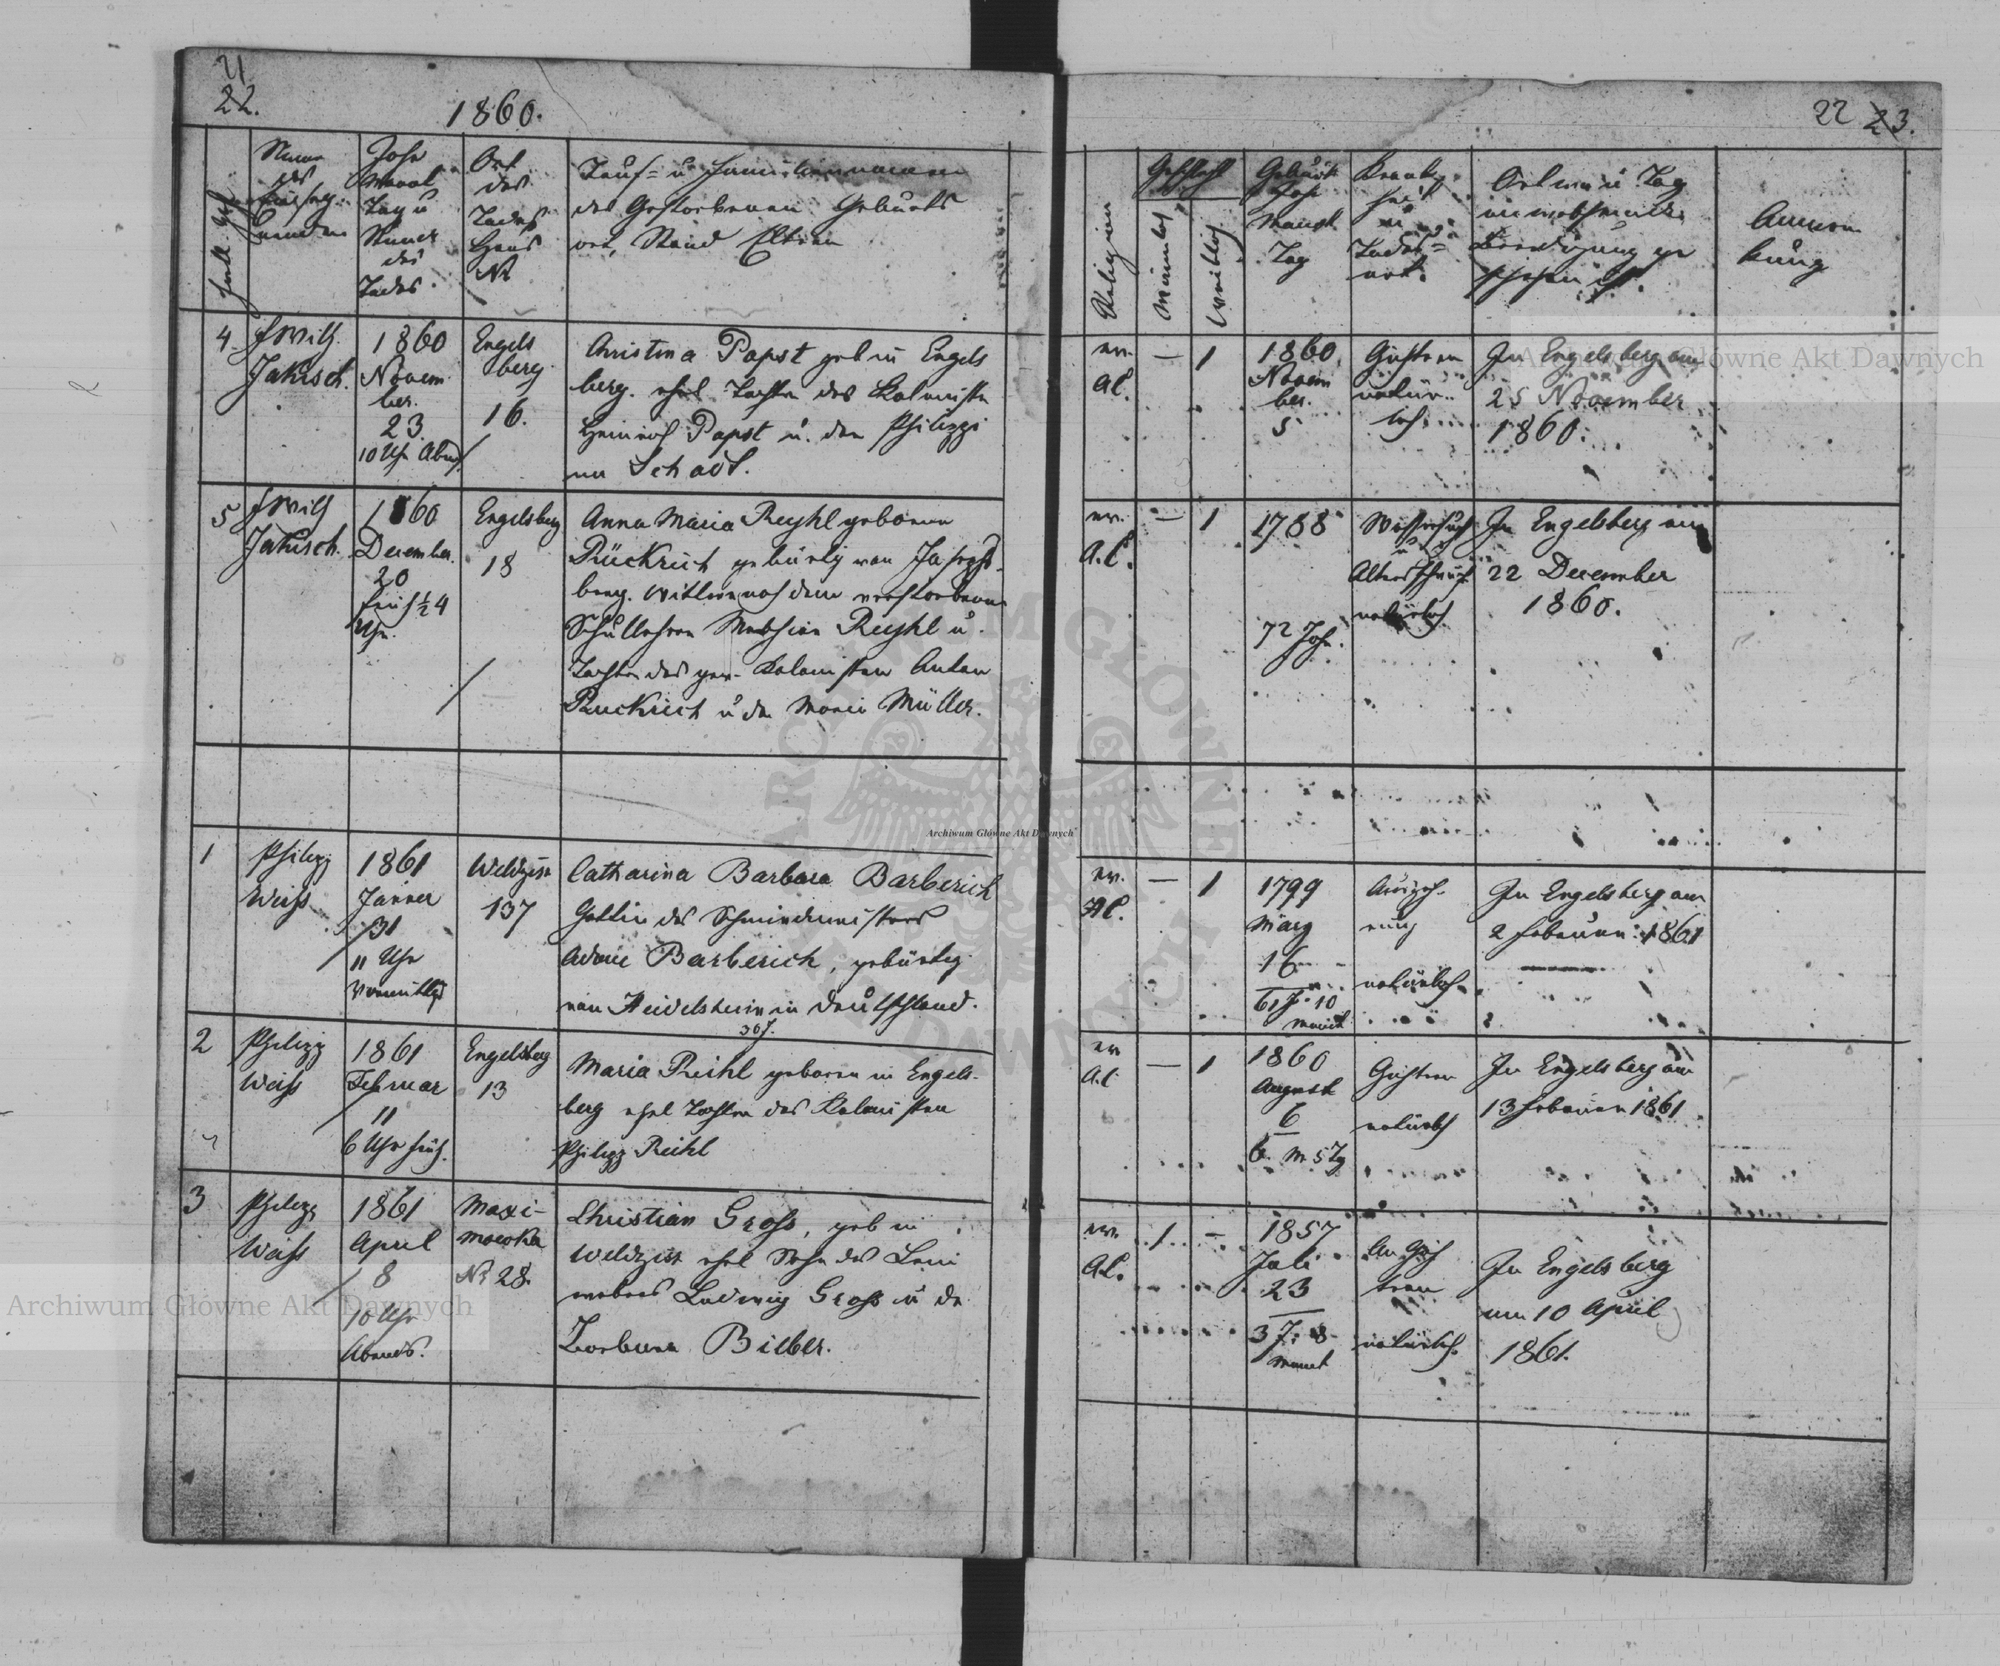 21
22.
1860.
Name
des
Einseg-
nenden
Jahr
Monat
Tag u
Stunde
des
Todes.
Ort
des
Todes
Haus
Nr
Tauf- u Familiennamen
des Gestorbenen Geburts
ort, Stand Eltern
4.
Wilh.
Jakisch.
1860
Novem
ber.
23
10 Uhr Abend
Engels
berg
16.
Christina Papst geb in Engels
berg. ehel Tochter des Kolonisten
Heinrich Papst u. der Philippi
na Schadt.
5
Wilh
Jakisch.
1860
December.
20
früh ½ 4
Uhr.
Engelsberg
18
Anna Maria Reyhl geborene
Rückrich gebürtig von Josephs-
berg. Wittwe nach dem verstorbenen
Schullehrer Mathias Reyhl u.
Tochter des gew. Kolonisten Anton
Ruckrich u der Maria Müller.
1
Philipp
Weiss
1861
Jänner
31
11 Uhr
Vormittag
Weldzirz
137
Catharina Barbara Barberich
Gattin des Schmiedmeisters
Adam Barberich, gebürtig
von Heidelsheim in Deutschland.
2
Philipp
Weiss
1861
Februar
11
6 Uhr früh.
Engelsberg
13
Maria Reihl geboren in Engels-
berg ehel Tochter des Kolonisten
Philipp Reihl
3
Philipp
Weiss
1861
April
8
10 Uhr
Abends.
Maxi-
mowka
Nr 28.
Christian Gross, geb in
Weldzirz ehel Sohn des Lein
webers Ludwig Gross u der
Barbara Bieber.
22 23.
Religion
Geschlecht
Männlich
Weiblich
Geburts
Jahr
Monat
Tag
Krank-
heit
u
Todes-
art.
Ort wo u Tag
an welchem die
Beerdigung ge
schehen ist.
Anmer
kung
ev.
A.C.
—
1
1860
Novem
ber.
5
Gichtern
natür-
lich
In Engelsberg am
25 November
1860.
ev.
A.C.
—
1
1788
72 Jah.
Wassersucht
u
Altersschwäche
natürlich
In Engelsberg am
22 December
1860.
ev.
A.C.
—
1
1799
März
16
61 J. 10
Monat
Auszeh-
rung
natürlich
In Engelsberg am
2 Februar 1861
ev
A.C
—
1
1860
August
6
6 M 5 Tg
Gichtern
natürlich
In Engelsberg am
13 Februar 1861
ev.
A.C.
1
—
1857
Juli
23
3 J. 8
Monat
An Gich
tern
natürlich.
In Engelsberg
am 10 April
1861.
Archiwum Główne Akt Dawnych